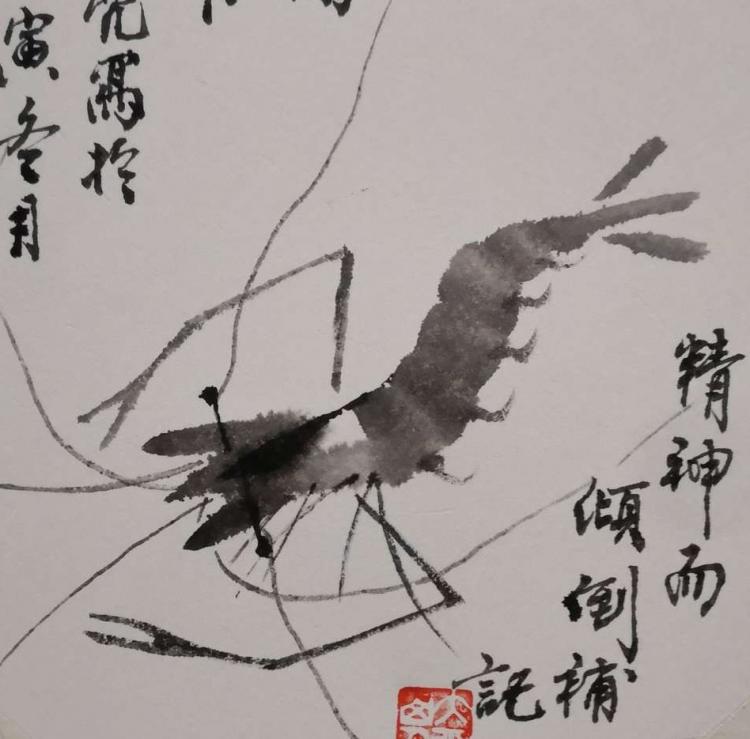 寫於
寅冬月
精神而
傾倒補
記